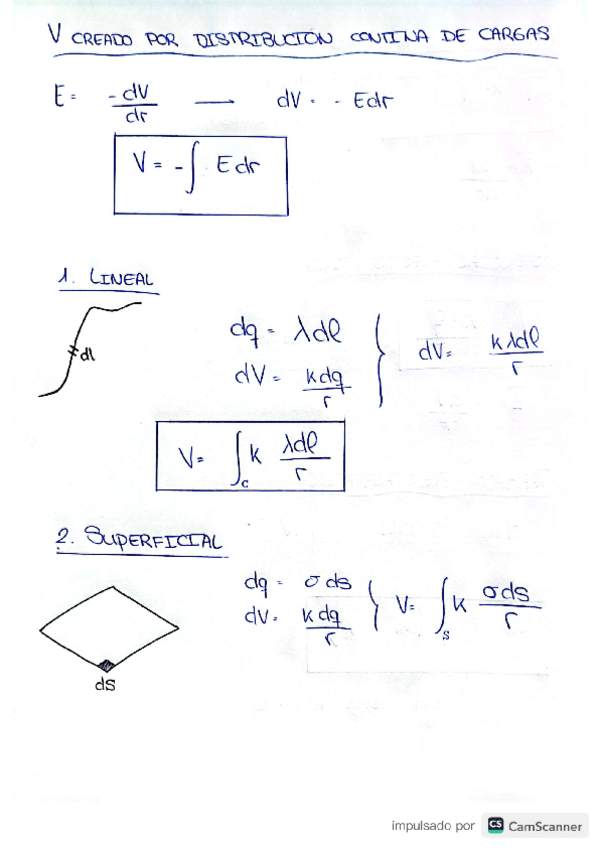 V CREADO POR DISTRIBUCIÓN CONTINA DE CARGAS
E = -dV/dr — dV = - Edr
V = -∫ Edr
1. LINEAL
dl
dq = λdl
dV = kdq/r
dV = kλdl/r
V = ∫c k λdl/r
2. SUPERFICIAL
dS
dq = σds
dV = kdq/r
V = ∫s k σds/r
impulsado por CS CamScanner